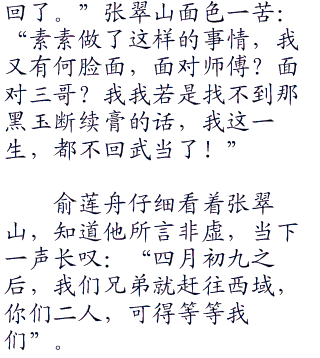 回了。”张翠山面色一苦：
“素素做了这样的事情，我
又有何脸面，面对师傅？面
对三哥？我我若是找不到那
黑玉断续膏的话，我这一
生，都不回武当了！”
俞莲舟仔细看着张翠
山，知道他所言非虚，当下
一声长叹：“四月初九之
后，我们兄弟就赶往西域，
你们二人，可得等等我
们”。